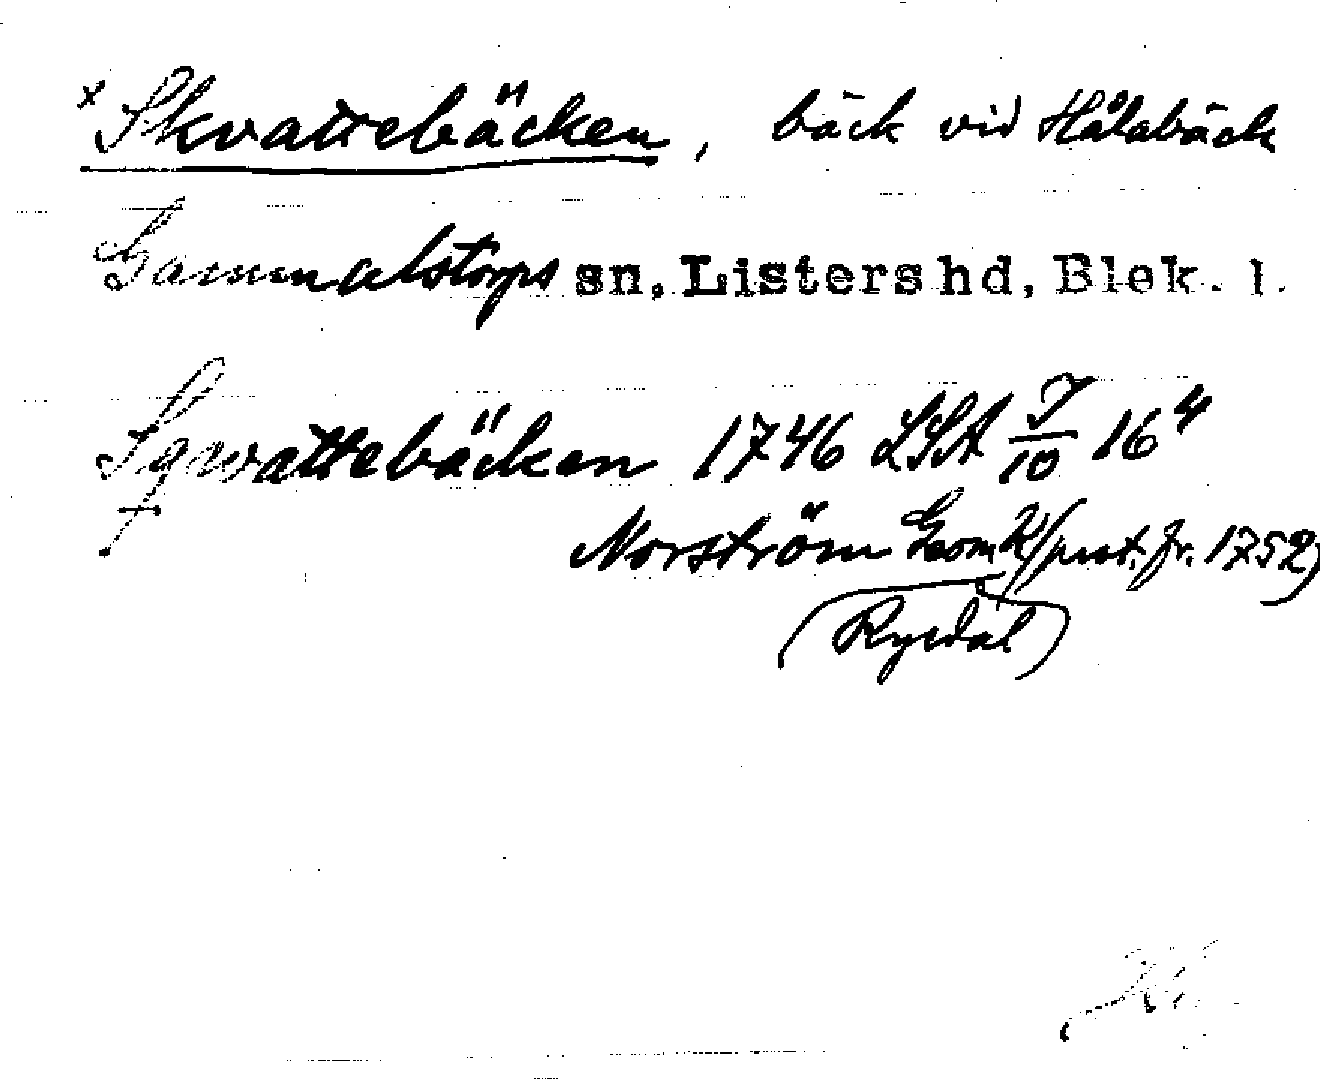 x Skvattebäcken, bäck vid Hålabäck
Gammalstorps sn, Listers hd, Blek. l.
Sqwattebäcken 1746 LSA I/10 16⁴
Norström Geom K/ust. fr. 1752)
(Ryedal)